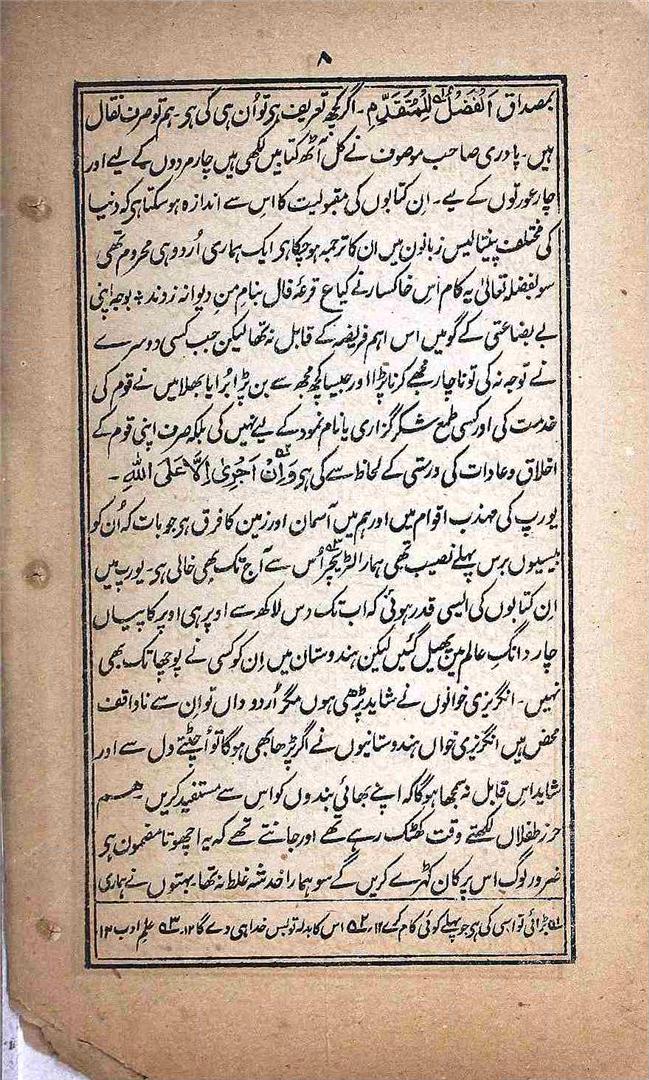 ۸
بمصداق اَلْفَضْلُ لِلْمُتَقَدِّمِ ۔ اگر کچھ تعریف ہی تو اُن ہی کی ہی۔ ہم تو صرف نقال
ہیں۔ پادری صاحب موصوف نے کل آٹھ کتابیں لکھی ہیں چار مردوں کے لیے اور
چار عورتوں کے لیے۔ اِن کتابوں کی مقبولیت کا اس سے اندازہ ہوسکتا ہی کہ دنیا
کی مختلف پینتالیس زبانون میں ان کا ترجمہ ہوچکا ہی ایک ہماری اُردو ہی محروم تھی
سو بفضلہ تعالیٰ یہ کام اس خاکسار نے کیا ع قرعۂ فال بنامِ منِ دیوانہ زدند ؞ بوجہ اپنی
بے بضاعتی کے گو میں اس اہم فریضہ کے قابل نہ تھا لیکن جب کسی دوسرے
نے توجہ نہ کی تو ناچار مجھے کرنا پڑا اور جیسا کچھ مجھ سے بن پڑا بُرا یا بھلا میں نے قوم کی
خدمت کی اور کسی طمع شکر گزاری یا نام نمود کے لیے نہیں کی بلکہ صرف اپنی قوم کے
اخلاق و عادات کی درستی کے لحاظ سے کی ہی وَاِنْ اَجْرِیَ اِلَّا عَلَی اللّٰهِ ۔
یورپ کی مہذب اقوام میں اور ہم میں آسمان اور زمین کا فرق ہی جو بات کہ اُن کو
بیسیوں برس پہلے نصیب تھی ہمارا لٹریچر اُس سے آج تک بھی خالی ہی۔ یورپ میں
اِن کتابوں کی ایسی قدر ہوئی کہ اب تک دس لاکھ سے اوپر ہی اوپر کاپیاں
چار دانگِ عالم میں پھیل گئیں لیکن ہندوستان میں اِن کو کسی نے پوچھا تک بھی
نہیں۔ انگریزی خوانوں نے شاید پڑھی ہوں مگر اُردو داں تو اِن سے ناواقف
محض ہیں انگریزی خواں ہندوستانیوں نے اگر پڑھا بھی ہوگا تو اُچٹتے دل سے اور
شاید اس قابل نہ سمجھا ہوگا کہ اپنے بھائی بندوں کو اس سے مستفید کریں۔ ہم
حرز طفلاں لکھتے وقت کھٹک رہے تھے اور جانتے تھے کہ یہ اچھوتا مضمون ہی
ضرور لوگ اس پر کان کھڑے کریں گے سو ہمارا خدشہ غلط نہ تھا۔ بہتوں نے ہماری
۵۱ بڑائی تو اسی کی ہی جو پہلے کوئی کام کرے ۱۲۔ ۵۲ اس کا بدلہ تو بس خدا ہی دے گا ۱۲۔ ۵۳ علم ادب ۱۲